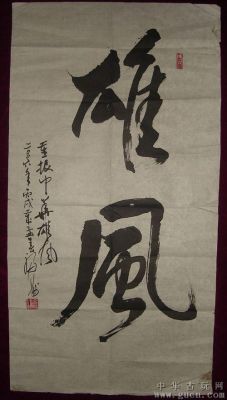 雄風
重振中華雄風
二〇〇六年丙戌
中华古玩网
www.gucn.com